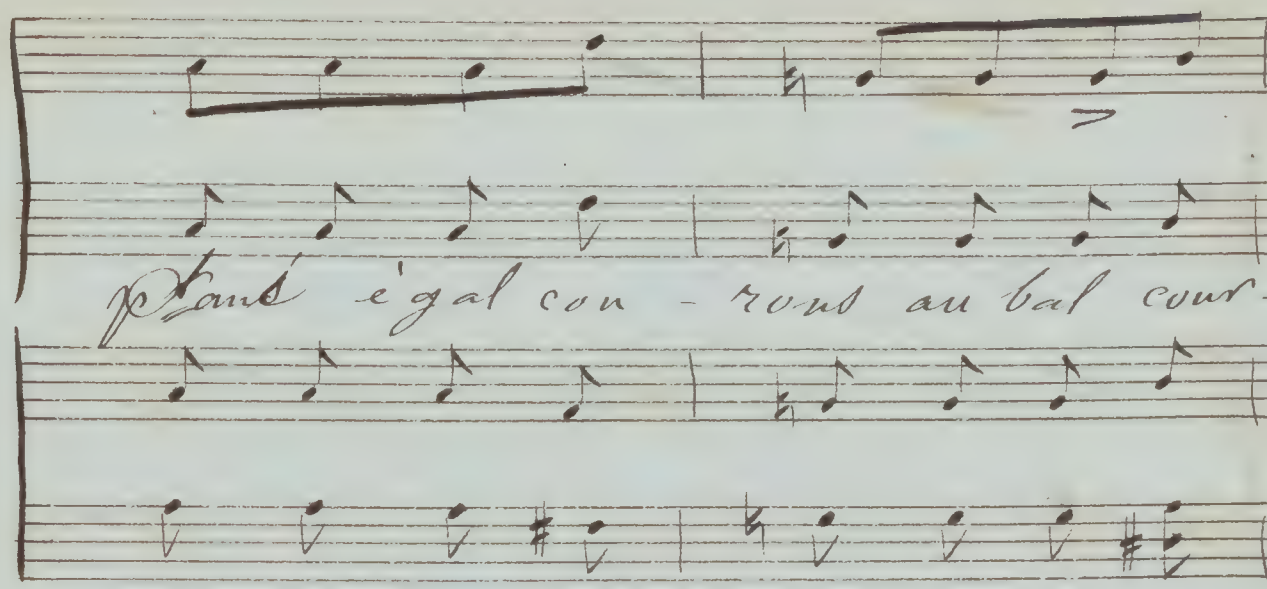 égal cou - rons au bal cour-